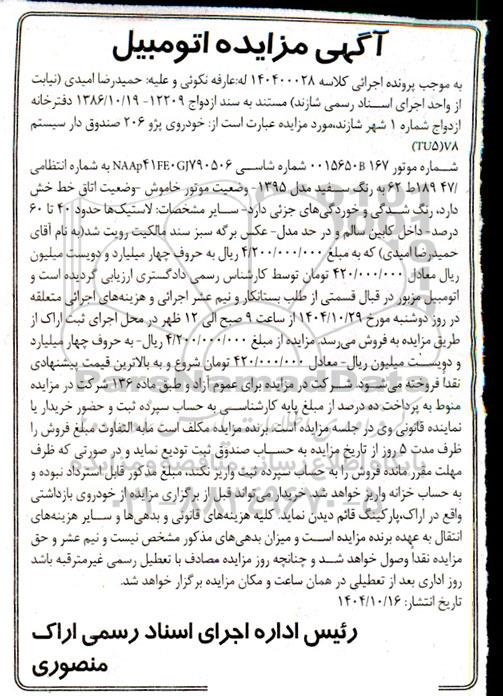 آگهی مزایده اتومبیل
به موجب پرونده اجرائی کلاسه ۱۴۰۴۰۰۰۲۸ له:عارفه نکوئی و علیه: حمیدرضا امیدی (نیابت
از واحد اجرای اسناد رسمی شازند) مستند به سند ازدواج ۱۲۲۰۹- ۱۳۸۶/۱۰/۱۹ دفترخانه
ازدواج شماره ۱ شهر شازند،مورد مزایده عبارت است از: خودروی پژو ۲۰۶ صندوق دار سیستم
(TU۵)V۸
شماره موتور ۱۶۷ B۰۰۱۵۶۵۰ شماره شاسی NAAp۴۱FE۰GJ۷۹۰۵۰۶ به شماره انتظامی
۴۷/ ۱۸۹ط ۶۲ به رنگ سفید مدل ۱۳۹۵- وضعیت موتور خاموش -وضعیت اتاق خط خش
دارد، رنگ شدگی و خوردگی‌های جزئی دارد- سایر مشخصات: لاستیک‌ها حدود ۴۰ تا ۶۰
درصد- داخل کابین سالم و در حد مدل- عکس برگه سبز سند مالکیت رویت شد(به نام آقای
حمیدرضا امیدی) که به مبلغ ۴/۲۰۰/۰۰۰/۰۰۰ ریال به حروف چهار میلیارد و دویست میلیون
ریال معادل ۴۲۰/۰۰۰/۰۰۰ تومان توسط کارشناس رسمی دادگستری ارزیابی گردیده است و
اتومبیل مزبور در قبال قسمتی از طلب بستانکار و نیم عشر اجرائی و هزینه‌های اجرائی متعلقه
در روز دوشنبه مورخ ۱۴۰۴/۱۰/۲۹ از ساعت ۹ صبح الی ۱۲ ظهر در محل اجرای ثبت اراک از
طریق مزایده به فروش می‌رسد. مزایده از مبلغ ۴/۲۰۰/۰۰۰/۰۰۰ ریال- به حروف چهار میلیارد
و دویست میلیون ریال- معادل ۴۲۰/۰۰۰/۰۰۰ تومان شروع و به بالاترین قیمت پیشنهادی
نقدا فروخته می‌شود. شرکت در مزایده برای عموم آزاد و طبق ماده ۱۳۶ شرکت در مزایده
منوط به پرداخت ده درصد از مبلغ پایه کارشناسی به حساب سپرده ثبت و حضور خریدار یا
نماینده قانونی وی در جلسه مزایده است. برنده مزایده مکلف است مابه التفاوت مبلغ فروش را
ظرف مدت ۵ روز از تاریخ مزایده به حساب صندوق ثبت تودیع نماید و در صورتی که ظرف
مهلت مقرر مانده فروش را به حساب سپرده ثبت واریز نکند، مبلغ مذکور قابل استرداد نبوده و
به حساب خزانه واریز خواهد شد. خریدار می‌تواند قبل از برگزاری مزایده از خودروی بازداشتی
واقع در اراک،پارکینگ قائم دیدن نماید. کلیه هزینه‌های قانونی و بدهی‌ها و سایر هزینه‌های
انتقال به عهده برنده مزایده است و میزان بدهی‌های مذکور مشخص نیست و نیم عشر و حق
مزایده نقداً وصول خواهد شد و چنانچه روز مزایده مصادف با تعطیل رسمی غیرمترقبه باشد
روز اداری بعد از تعطیلی در همان ساعت و مکان مزایده برگزار خواهد شد.
تاریخ انتشار: ۱۴۰۴/۱۰/۱۶
رئیس اداره اجرای اسناد رسمی اراک
منصوری